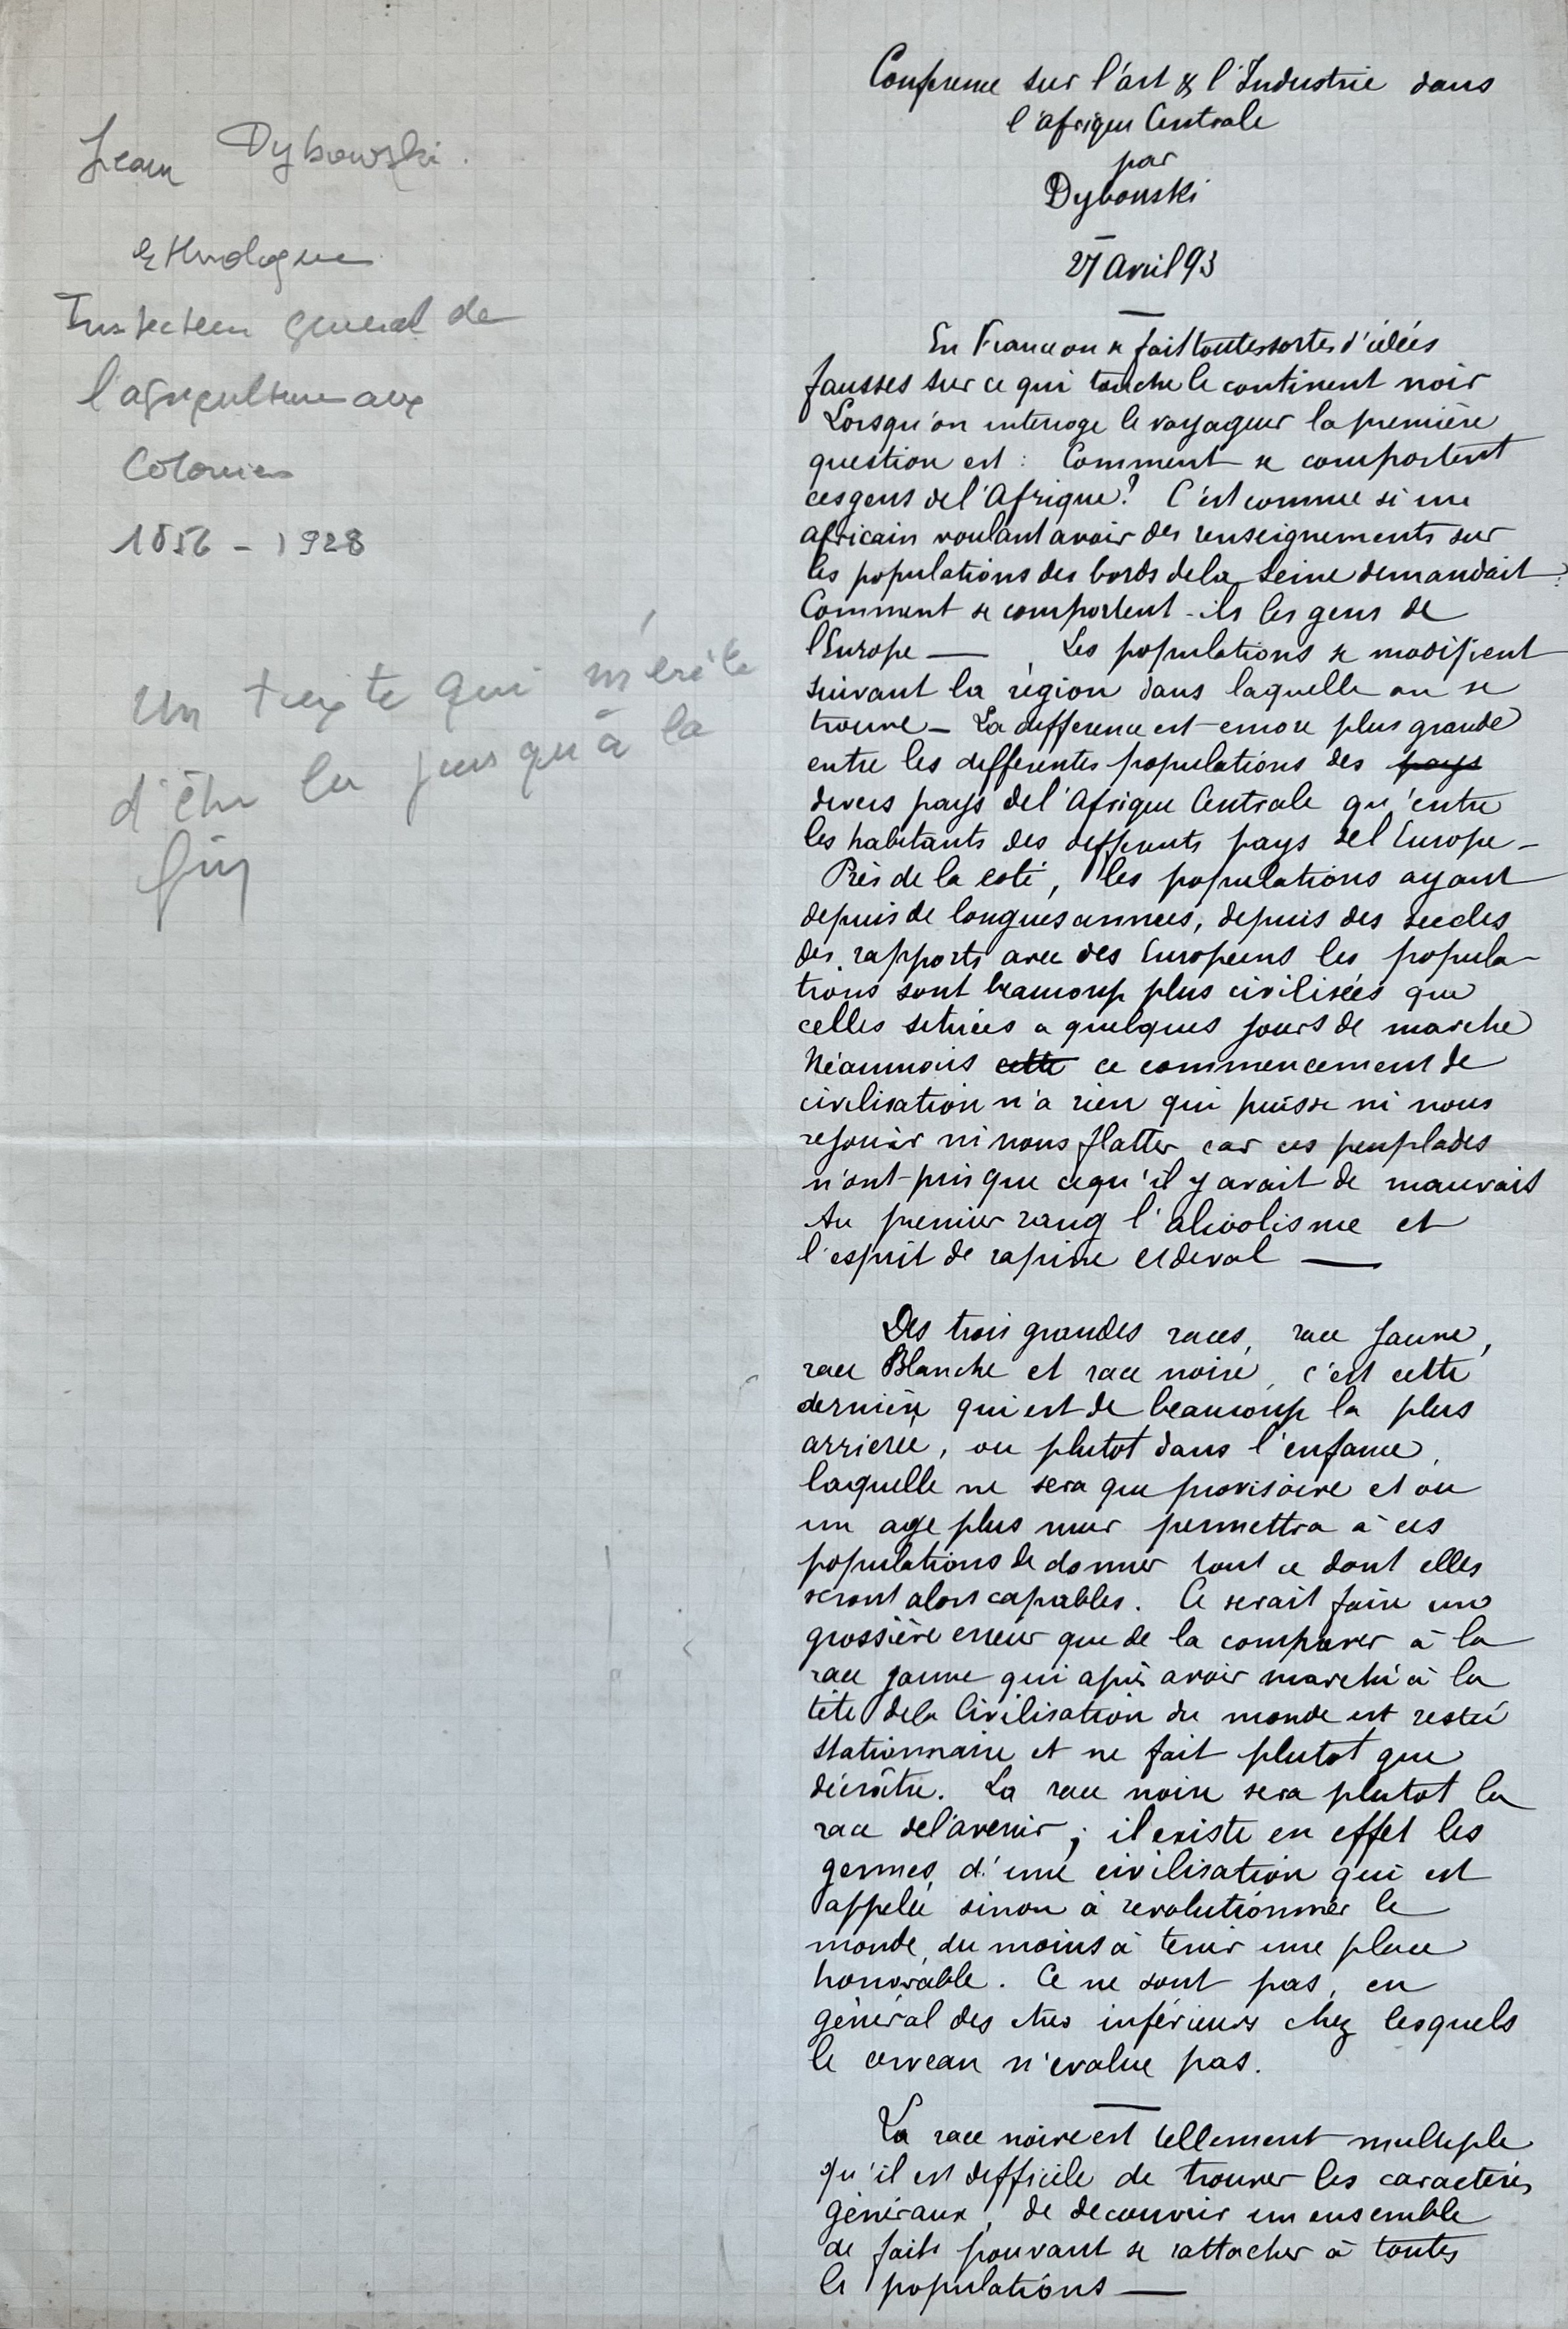 Jean Dybowski.
Ethnologue
Inspecteur general de
l'agriculture aux
Colonies
1856 - 1928
Un texte qui mérite
d'être lu jusqu'à la
fin
Conference sur l'art & l'Industrie dans
l'afrique Centrale
par
Dybouski
27 Avril 93
En France on se fait toutes sortes d'idées
fausses sur ce qui touche le continent noir
Lorsqu'on interroge le voyageur la première
question est : Comment se comportent
ces gens de l'Afrique? C'est comme si un
africain voulant avoir des renseignements sur
les populations des bords de la Seine demandait :
Comment se comportent-ils les gens de
l'Europe — Les populations se modifient
suivant la région dans laquelle on se
trouve — La difference est encore plus grande
entre les differentes populations des pays
divers pays de l'Afrique Centrale qu'entre
les habitants des differents pays de l'Europe —
Près de la coté, les populations ayant
depuis de longues annees, depuis des siecles
des rapports avec des Européens les popula-
tions sont beaucoup plus civilisées que
celles situées a quelques jours de marche
Néanmois cette ce commencement de
civilisation n'a rien qui puisse ni nous
rejouir ni nous flatter car ces peuplades
n'ont pris que ce qu'il y avait de mauvais
Au premier rang l'alcolisme et
l'esprit de rapine et de vol —
Des trois grandes races, race Jaune,
race Blanche et race noire, c'est cette
dernière qui est de beaucoup la plus
arrierée, ou plutot dans l'enfance,
laquelle ne sera que provisoire et ou
un age plus mur permettra à ces
populations de donner tout ce dont elles
seront alors capables. Ce serait faire une
grossière erreur que de la comparer à la
race jaune qui après avoir marché à la
tête de la Civilisation du monde est resteé
stationnaire et ne fait plutot que
décroître. La race noire sera plutot la
race de l'avenir ; il existe en effet les
germes d'une civilisation qui est
appelée sinon à revolutionner le
monde, du moins à tenir une place
honorable. Ce ne sont pas, en
général des êtres inférieurs chez lesquels
le cerveau n'evolue pas.
La race noire est tellement multiple
qu'il est difficile de trouver les caractères
généraux, de decouvrir un ensemble
de faits pouvant se rattacher à toutes
les populations —